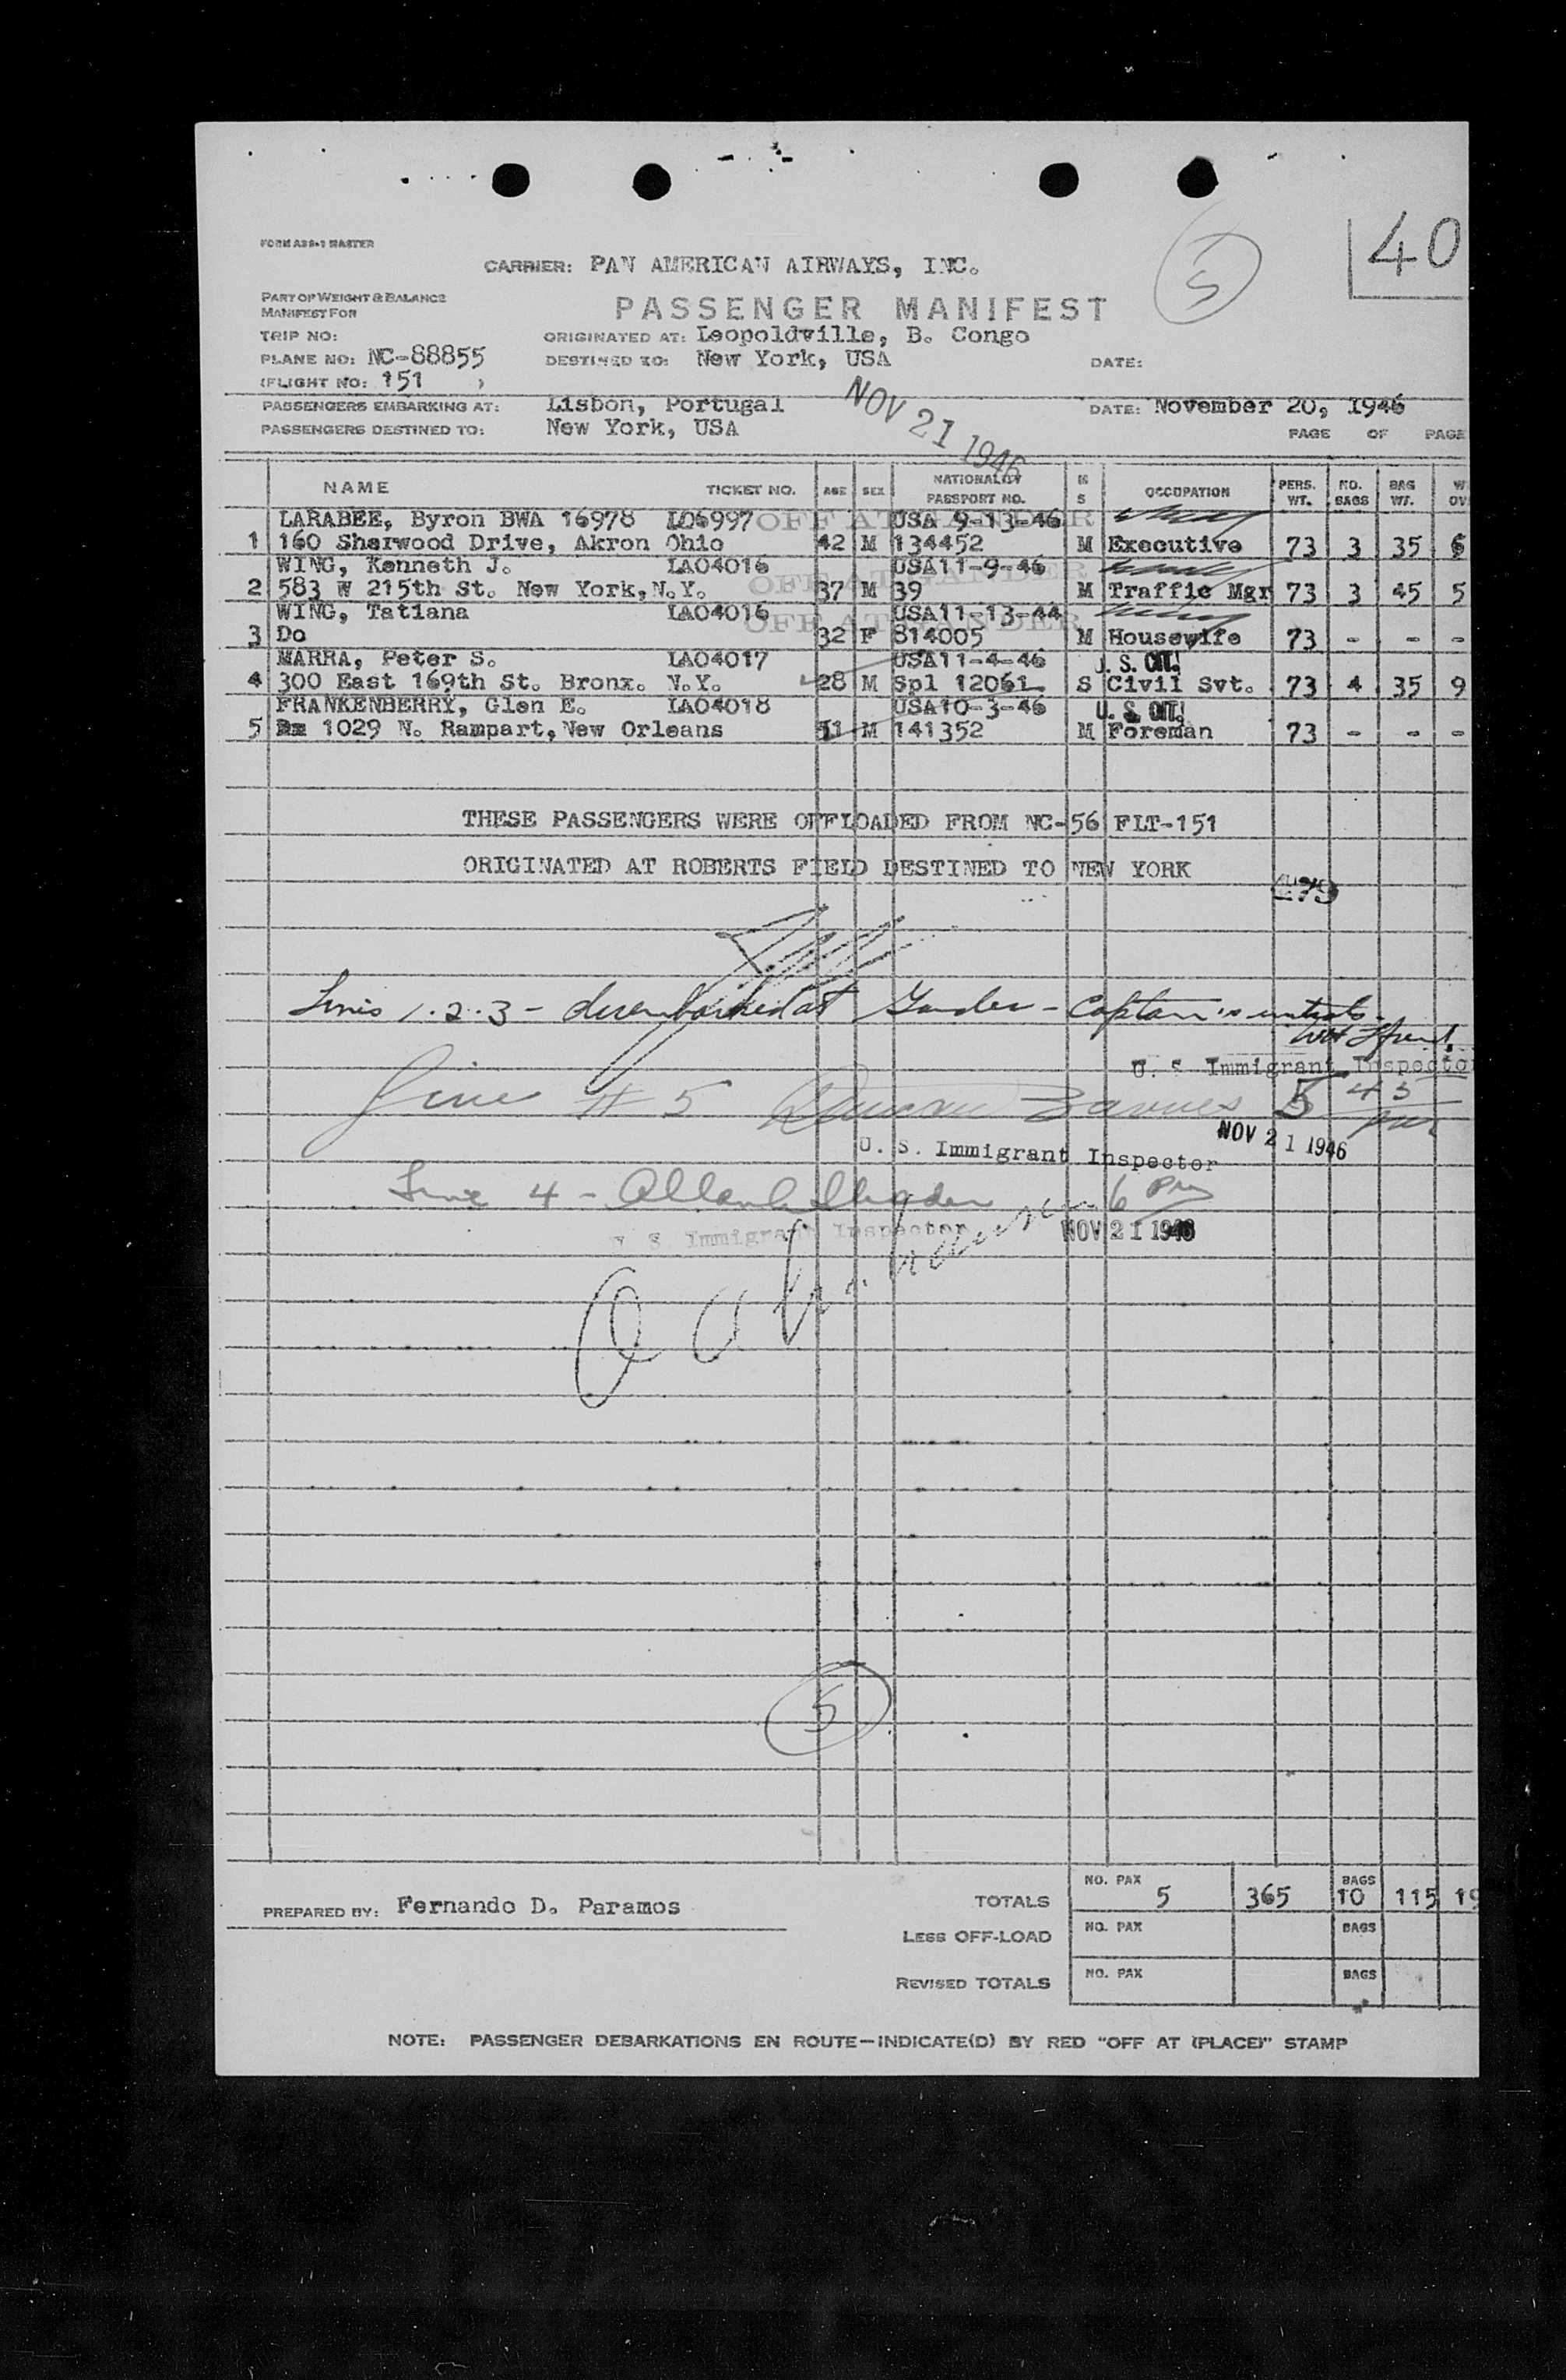 FORM A33-1 MASTER
40
5
CARRIER: PAN AMERICAN AIRWAYS, INC.
PART OF WEIGHT & BALANCE
MANIFEST FOR
PASSENGER MANIFEST
TRIP NO:
ORIGINATED AT: Leopoldville, B. Congo
PLANE NO: NC-88855
DESTINED TO: New York, USA
DATE:
(FLIGHT NO: 151 )
PASSENGERS EMBARKING AT: Lisbon, Portugal
DATE: November 20, 1946
PASSENGERS DESTINED TO: New York, USA
NOV 21 1946
PAGE OF PAGE
NAME TICKET NO. AGE SEX NATIONALITY PASSPORT NO. M S OCCUPATION PERS. WT. NO. BAGS BAG WT. W OV
LARABEE, Byron BWA 16978 LO6997 OFF AT GANDER USA 9-13-46
1 160 Sherwood Drive, Akron Ohio 42 M 134452 M Executive 73 3 35 6
WING, Kenneth J. LA04016 OFF AT GANDER USA11-9-46
2 583 W 215th St. New York, N.Y. 37 M 39 M Traffic Mgr 73 3 45 5
WING, Tatiana LA04016 OFF AT GANDER USA11-13-44
3 Do 32 F 814005 M Housewife 73 - - -
MARRA, Peter S. LA04017 USA11-4-46 U. S. CIT.
4 300 East 169th St. Bronx. N.Y. 28 M Spl 12061 S Civil Svt. 73 4 35 9
FRANKENBERRY, Glen E. LA04018 USA10-3-46 U. S. CIT.
5 1029 N. Rampart, New Orleans 51 M 141352 M Foreman 73 - - -
THESE PASSENGERS WERE OFFLOADED FROM NC-56 FLT-151
ORIGINATED AT ROBERTS FIELD DESTINED TO NEW YORK
279
Lines 1.2.3 - disembarked at Gander - Captain's initials.
U. S. Immigrant Inspector
Line # 5 5 45 pm
NOV 21 1946
U. S. Immigrant Inspector
Line 4 - 6 PM
U. S. Immigrant Inspector NOV 21 1946
5
PREPARED BY: Fernando D. Paramos
TOTALS NO. PAX 5 365 BAGS 10 115 19
LESS OFF-LOAD NO. PAX BAGS
REVISED TOTALS NO. PAX BAGS
NOTE: PASSENGER DEBARKATIONS EN ROUTE—INDICATE(D) BY RED "OFF AT (PLACE)" STAMP